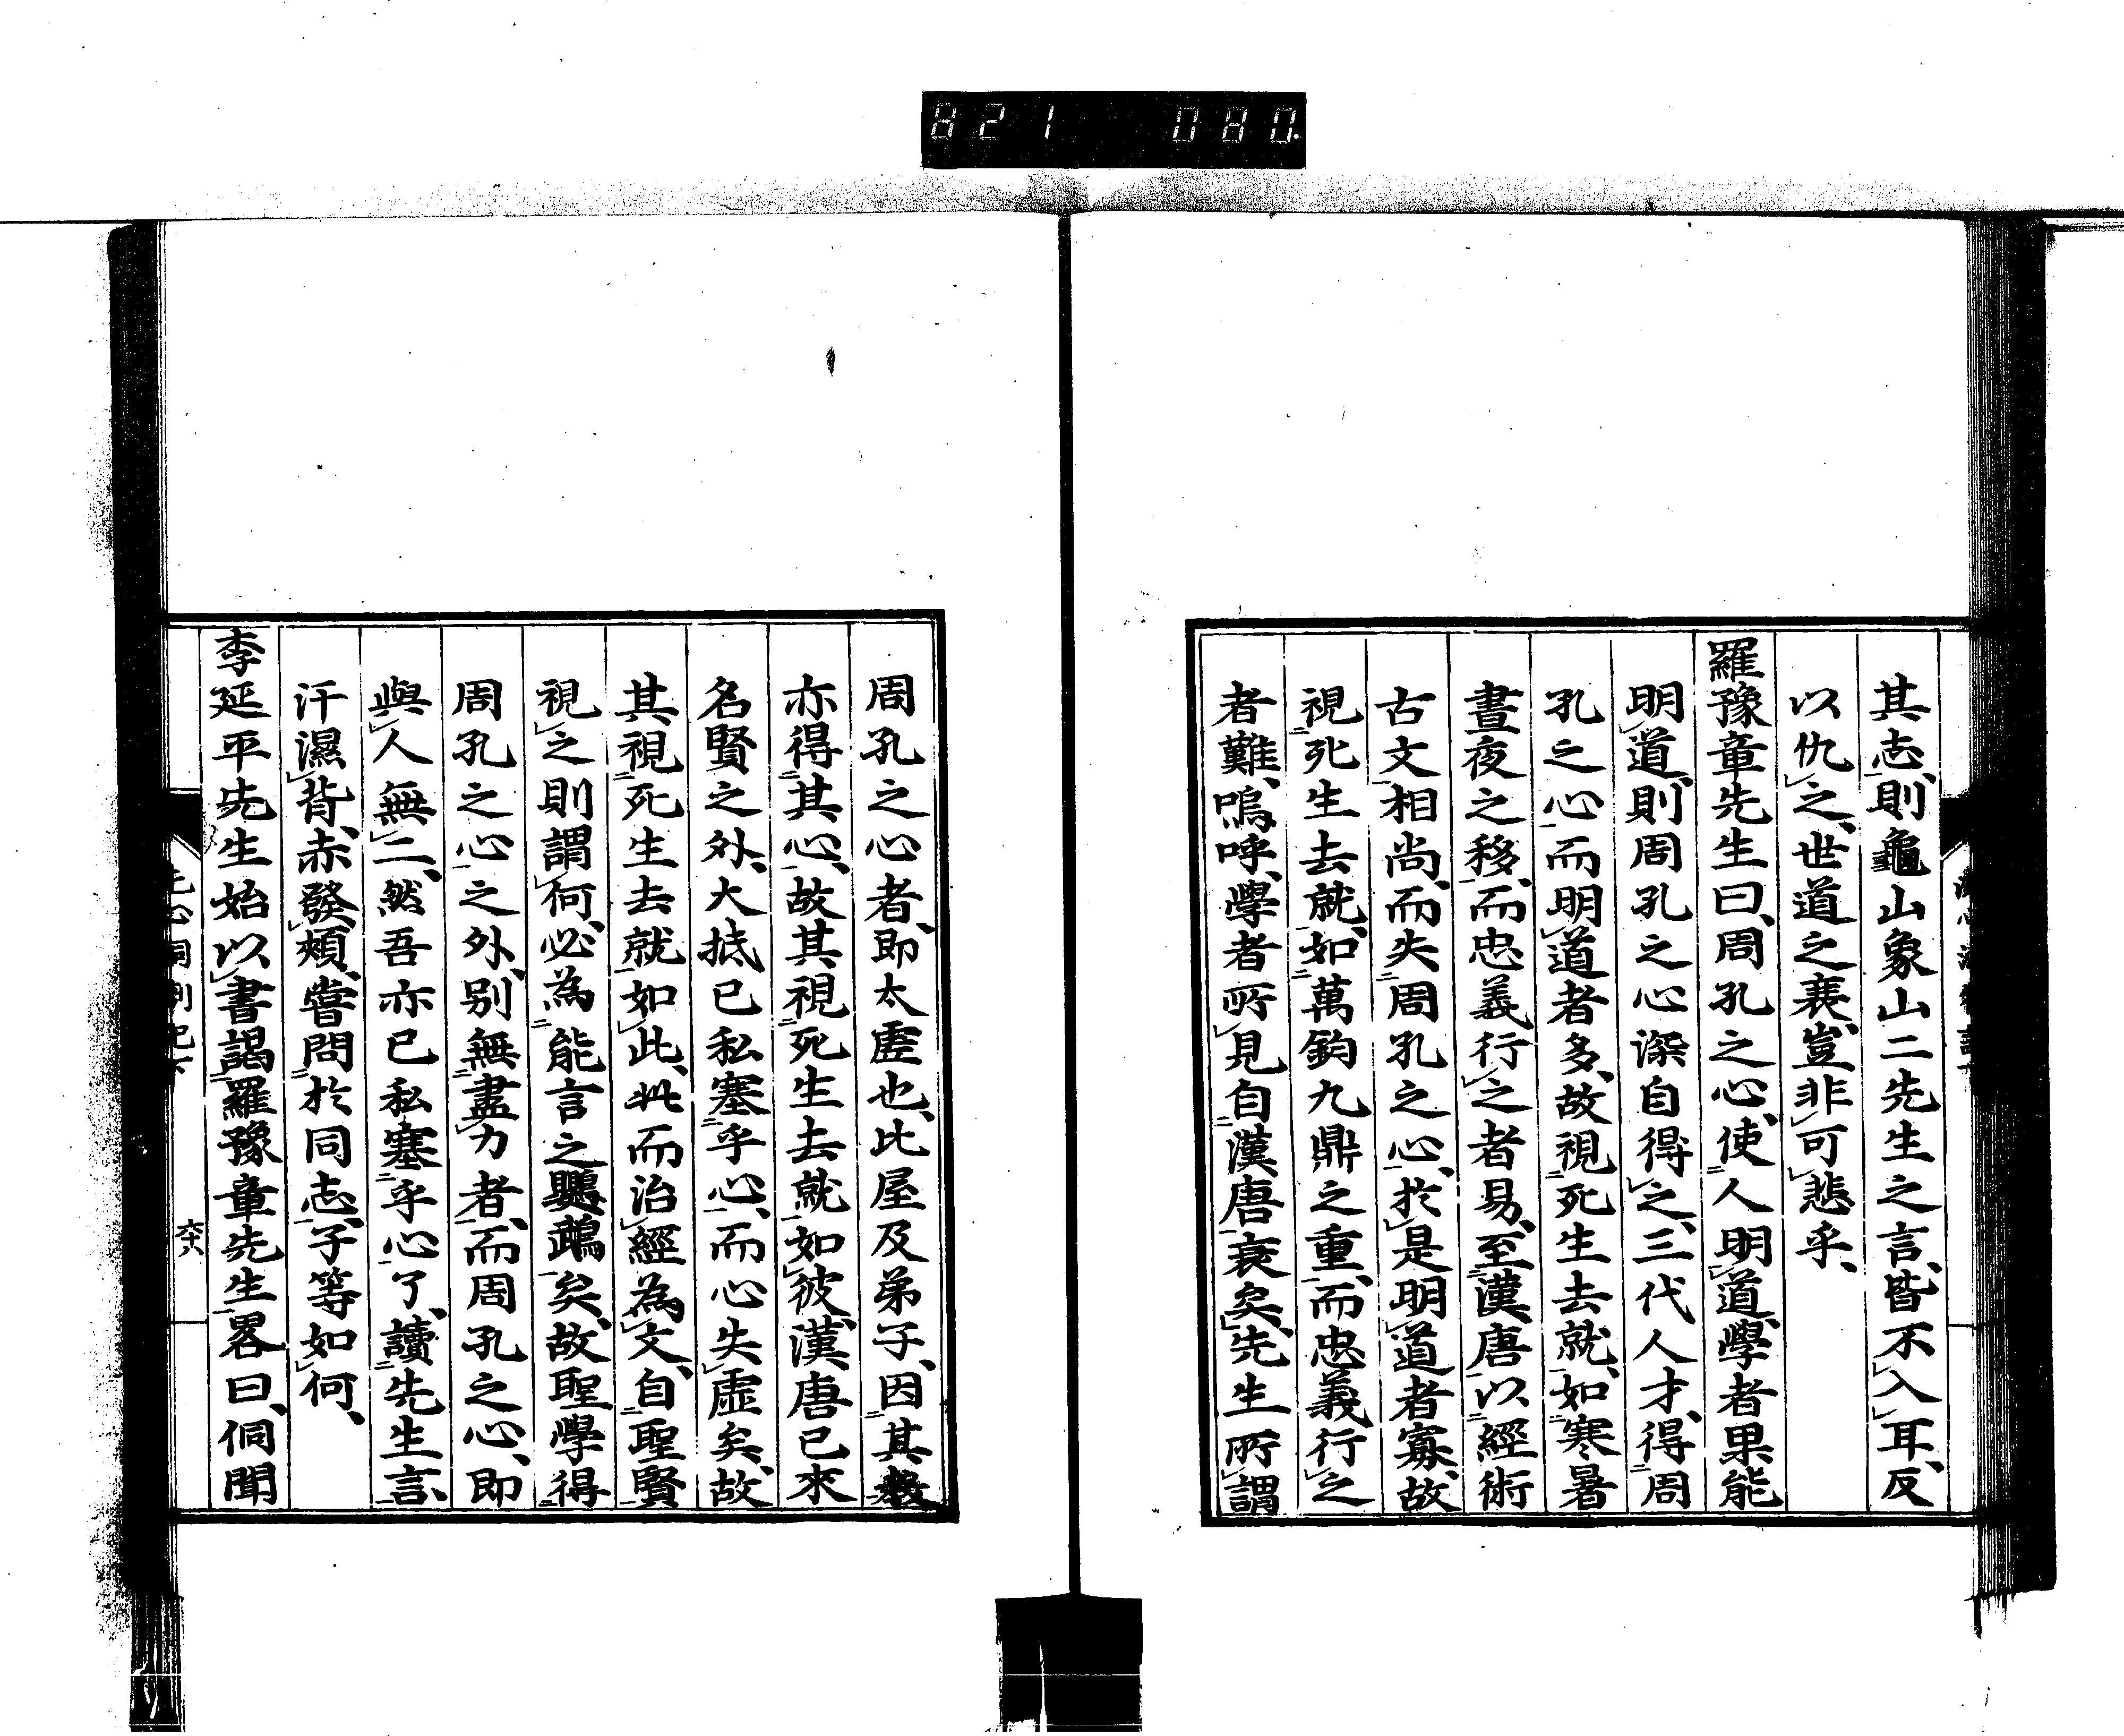 821 080
其志、則龜山象山二先生之言、皆不入耳、反
以仇之、世道之衰、豈非可悲乎、
羅豫章先生曰、周孔之心、使人明道、學者果能
明道、則周孔之心深自得之、三代人才、得周
孔之心而明道者多、故視死生去就、如寒暑
晝夜之移、而忠義行之者易、至漢唐以經術
古文相尚、而失周孔之心、於是明道者寡、故
視死生去就、如萬鈞九鼎之重、而忠義行之
者難、嗚呼、學者所見自漢唐衰矣、先生所謂
周孔之心者、即太虛也、比屋及弟子、因其教
亦得其心、故其視死生去就如彼、漢唐已來
名賢之外、大抵已私塞乎心、而心失虛矣、故
其視死生去就如此、此而治經為文、自聖賢
視之則謂何、必為能言之鸚鵡矣、故聖學得
周孔之心之外、別無盡力者、而周孔之心、即
與人無二、然吾亦已私塞乎心了、讀先生言、
汗濕背、赤發頰、嘗問於同志、子等如何、
李延平先生始以書謁羅豫章先生畧曰、侗聞
六十八